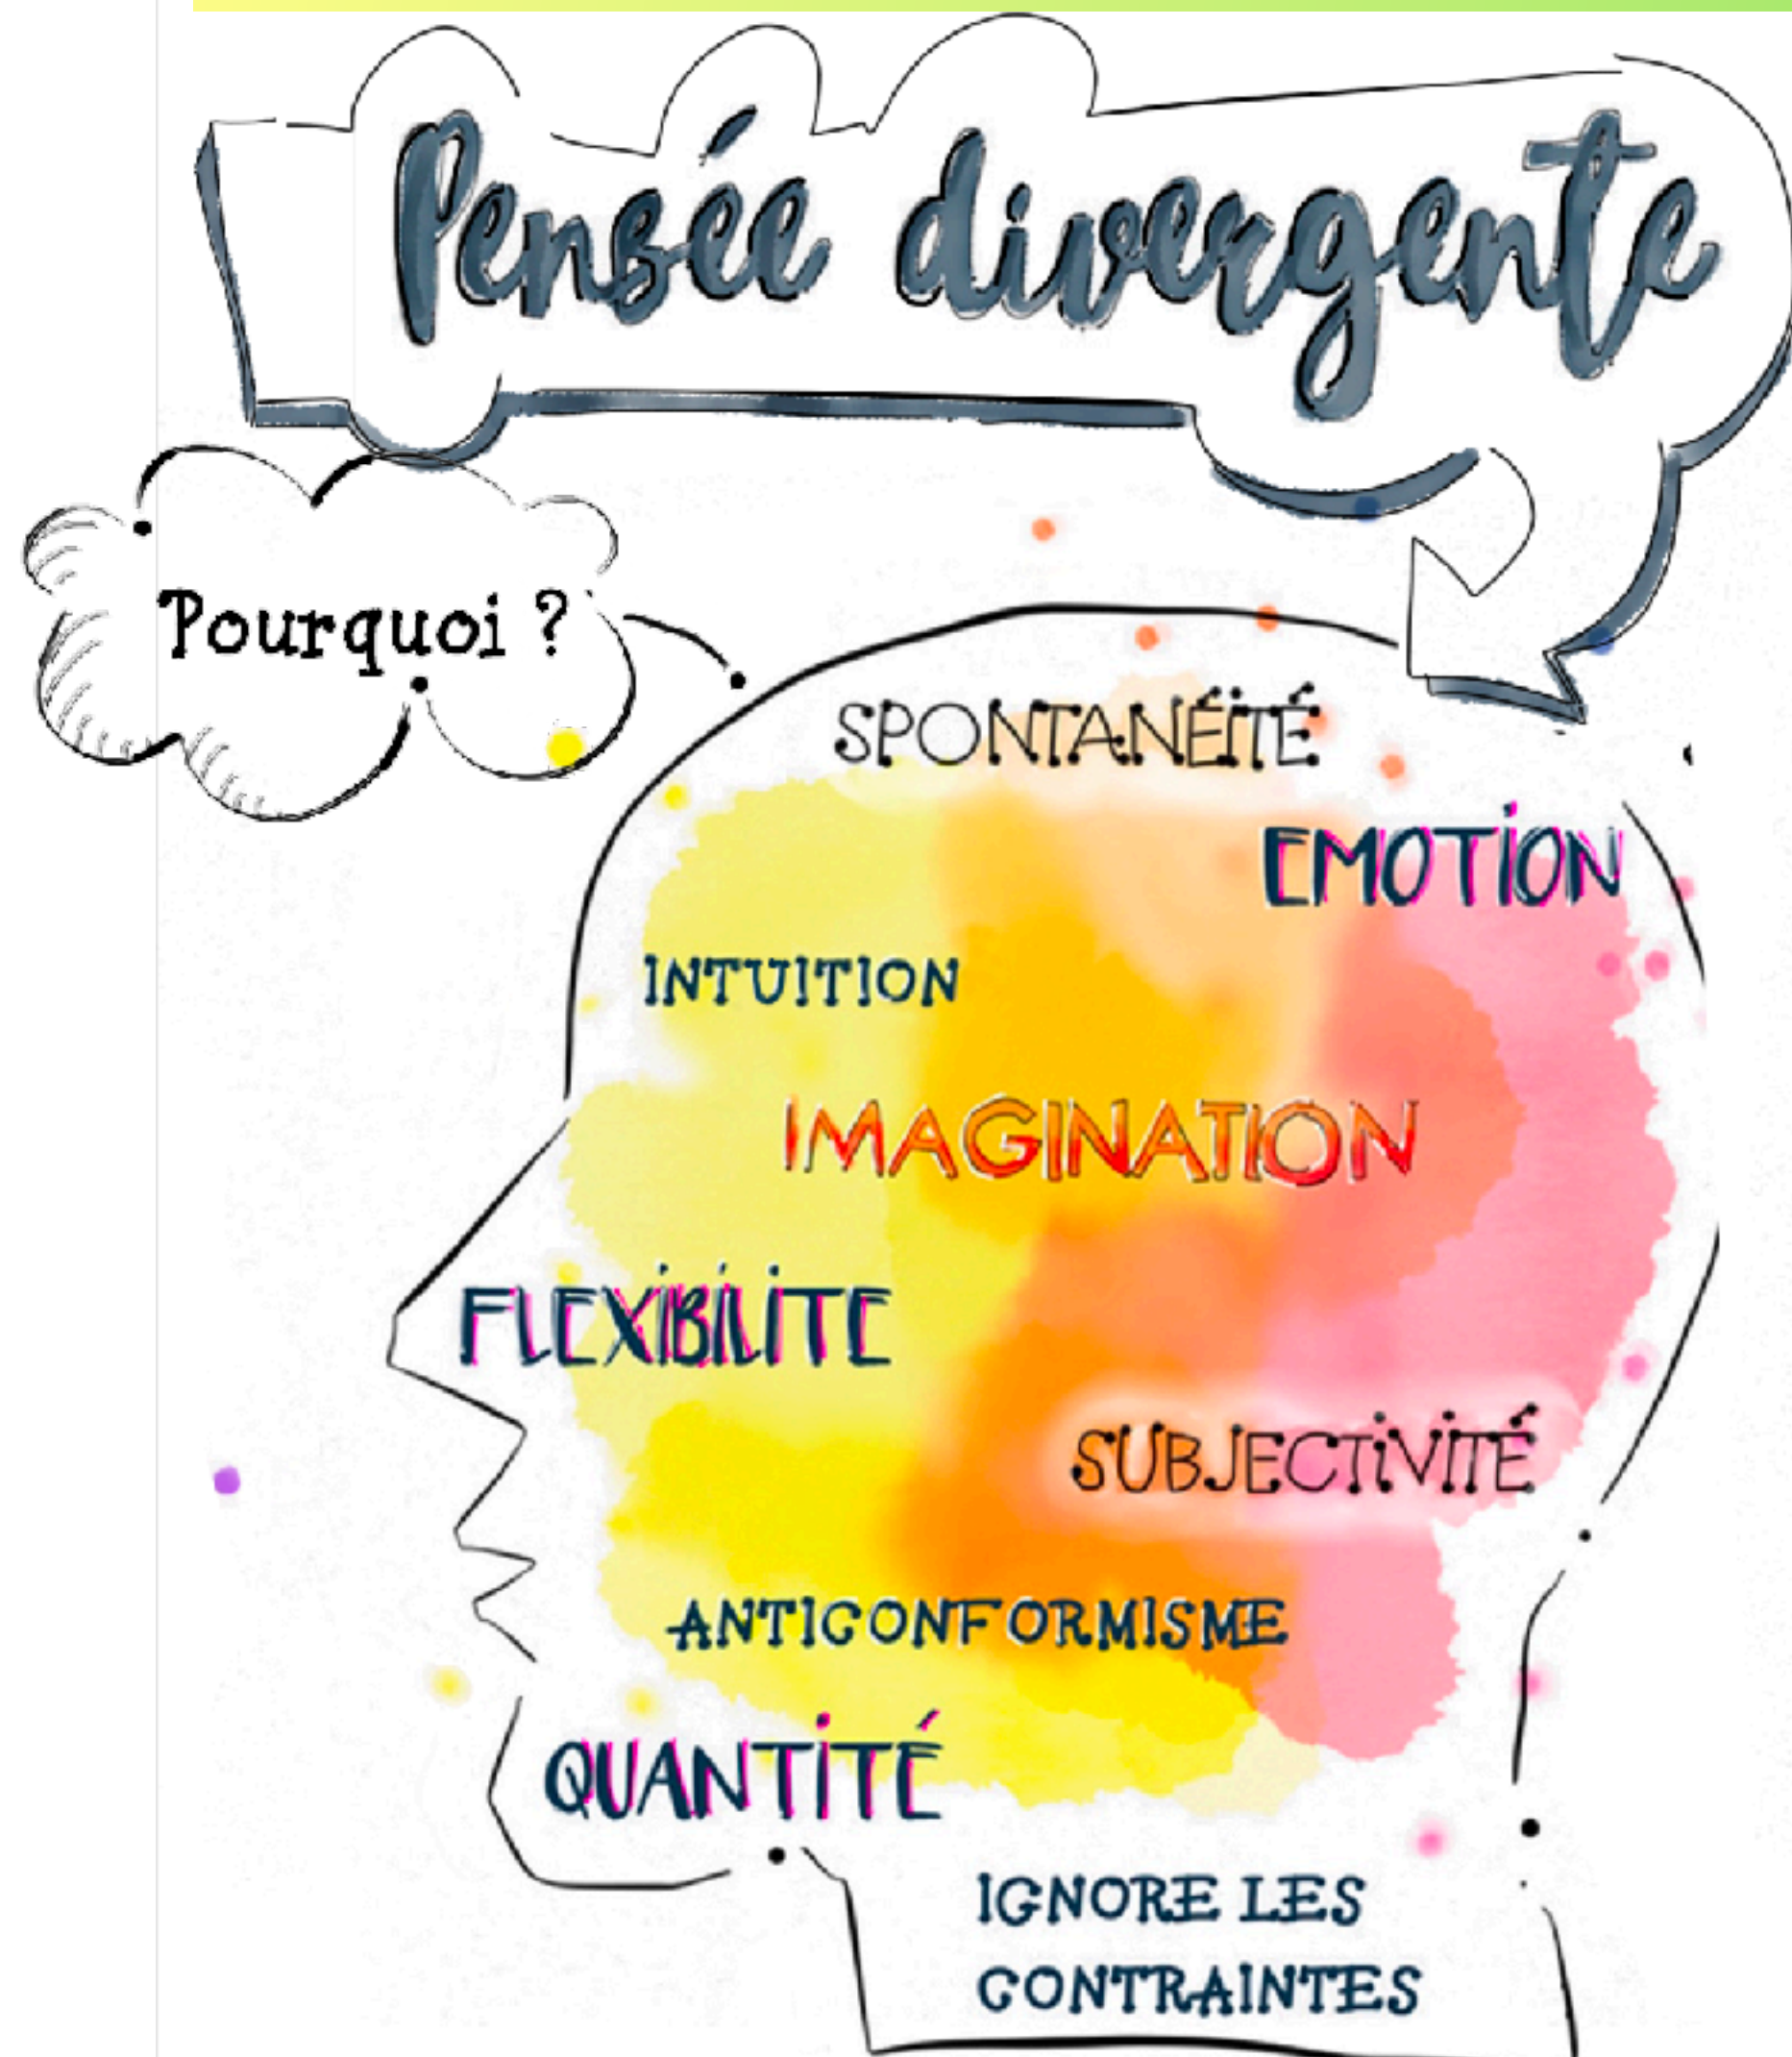 Pensée divergente
Pourquoi ?
SPONTANÉITÉ
EMOTION
INTUITION
IMAGINATION
FLEXIBILITE
SUBJECTIVITÉ
ANTICONFORMISME
QUANTITÉ
IGNORE LES
CONTRAINTES